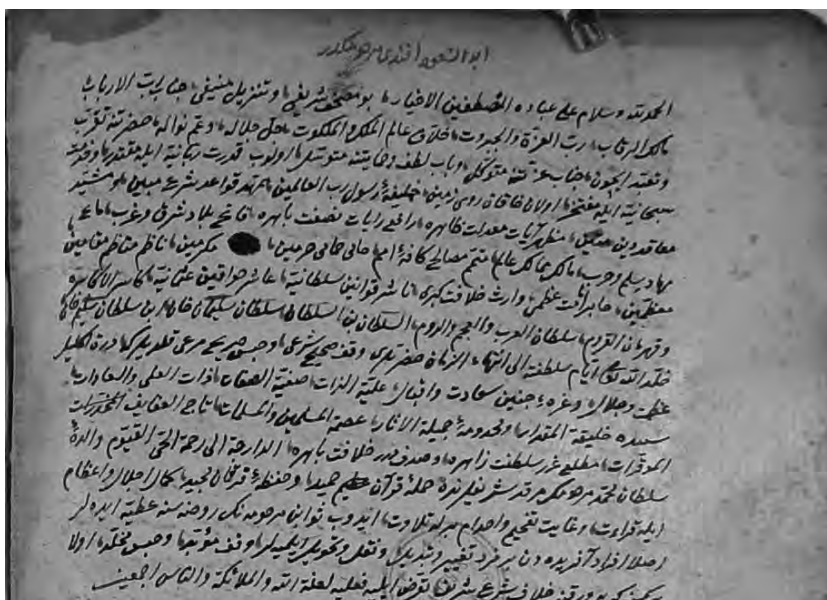 ابو السعود افندی مرحومکدر
الحمد لله وسلام على عباده المصطفين الاخيار بو مصحف شريفی وتنزيل منيفی جناب رب الارباب
مالك الرقاب رب العزة والجبروت خلاق عالم الملك والملكوت جل جلاله وعم نواله حضرتنه تقرب
جناب عزتنه متوكل وباب لطف وحمايتنه متوسل اولوب قدرت ربانيه ايله مقتدر
سبحانيه ايله مفتخر اولان خاقان روی زمين خليفه رسول رب العالمين ممهد قواعد شرع مبين
معاقد دين متين مظهر آيات معدلت ظاهره رافع رايات نصفت باهره فاتح بلاد شرق وغرب
مالك ممالك عالم متمم مصالح كافه امم حامی حمای حرمين مكرمين ناظم مناظم مقامين
معظمين وارث خلافت كبرى ناشر قوانين سلطانيه عاشر خواقين عثمانيه كاسر الاكاسره
وقهرمان القروم سلطان العرب والعجم والروم السلطان بن السلطان سلطان سليمان خان بن سلطان سليم خان
خلد الله ايام سلطنته الى انتهاء الزمان حضرتلری وقف صحيح شرعی وحبس صريح مرعی
عظمت وجلال وغره جبين سعادت واقبال عليه الذات صفيه الصفات ذات العلى والسعادات
سيده جليلة المقدار جميلة الاثار عصمة المسلمين والمسلمات تاج العفايف المخدرات
الموقرات مطلع غرر سلطنت زاهره وصدف درر خلافت باهره الدارجة الى رحمة الحی القيوم والده
سلطان محمد مرحومك مرقد شريفلرنده حمله قرآن وحفظه فرقان مجيد كمال اجلال واعظام
ايله قراءت وغايت تفخيم واحترام برله تلاوت ايدوب ثوابن مرحومه نك روضه سنه عطيه ايده لر
اصلا افراد آفريده دن بر فرد تغيير وتبديل ونقل وتحويل ايليه وقف مؤبد وحبس مخلد اولا
خلاف شرع شريف تعرض ايليه فعليه لعنة الله والملائكة والناس اجمعين